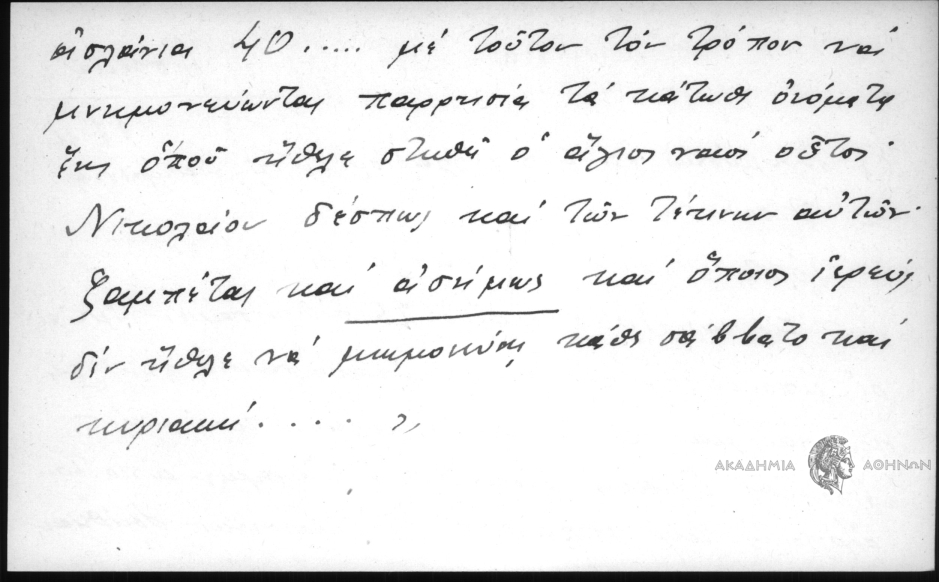 ἀσλάνια 40..... μέ τοῦτον τόν τρόπον νά
μνημονεύωνται παρρησίᾳ τά κάτωθι ὀνόματα
ἕως ὁποῦ ἤθελε στηθῆ ὁ ἅγιος ναός οὗτος·
Νικολάου δέσπως καί τῶν τέκνων αὐτῶν·
ζαμπέτας καί ἀσήμως καί ὅποιος ἱερεύς
δέν ἤθελε νά μνημονεύῃ κάθε σάββατο καί
κυριακή.....»
ΑΚΑΔΗΜΙΑ ΑΘΗΝΩΝ